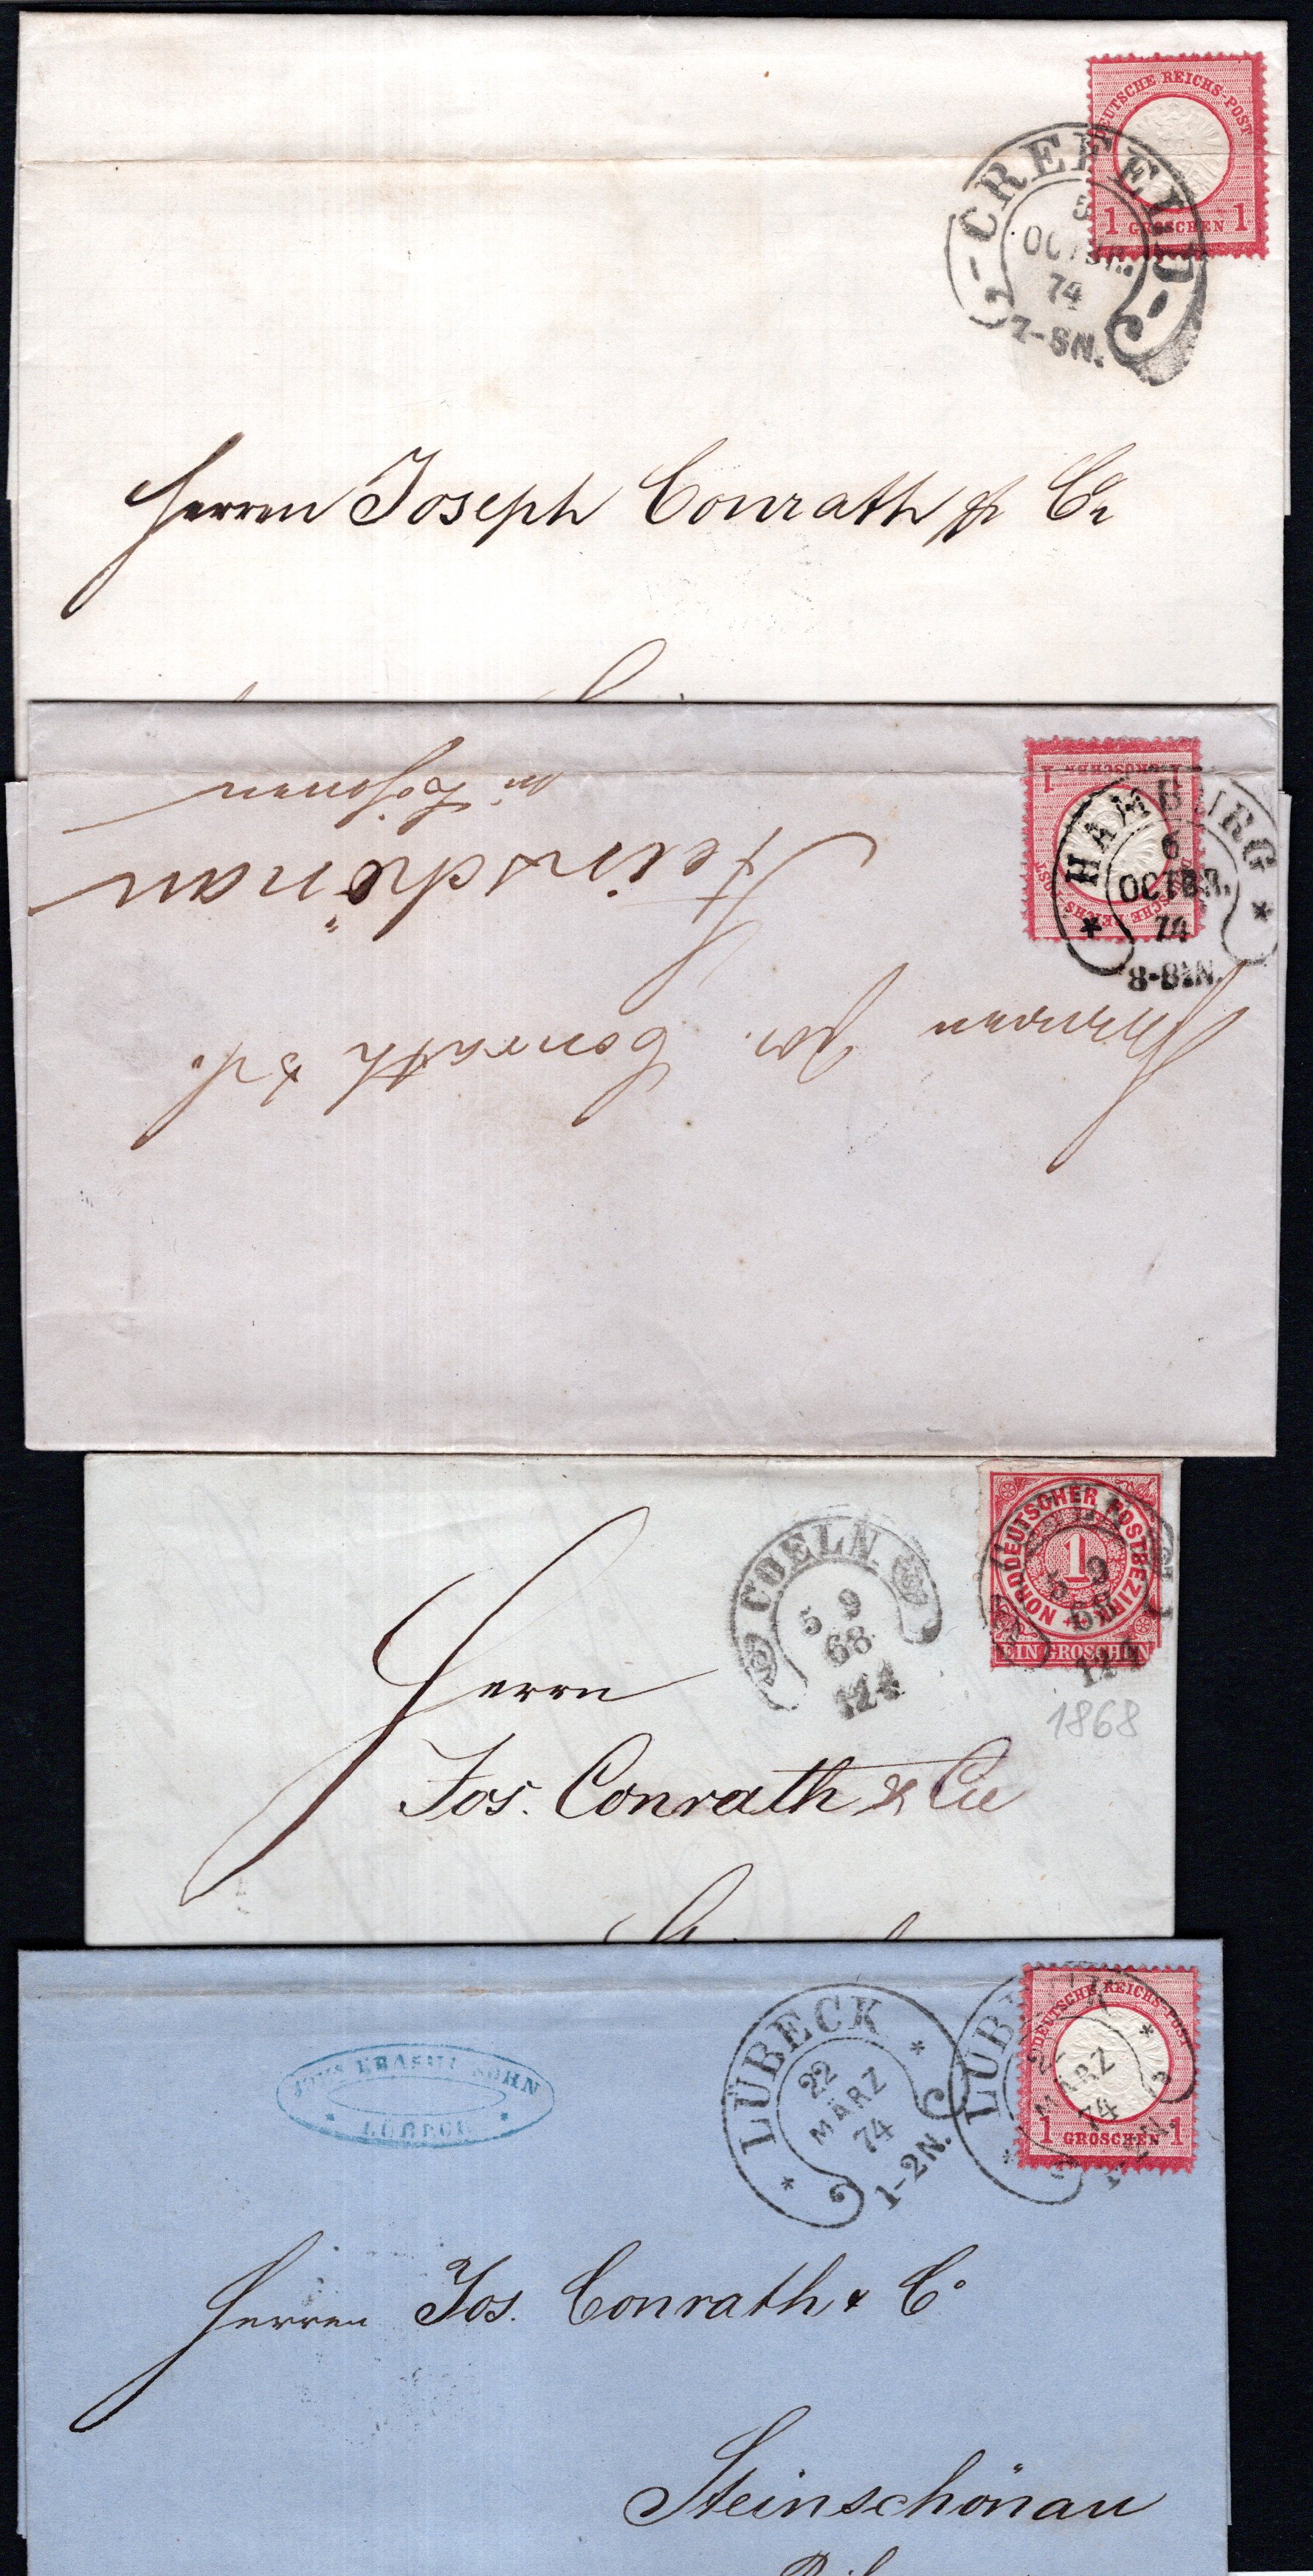 DEUTSCHE REICHS-POST
1 GROSCHEN 1
CREFELD
OCTBR.
74
7-8N.
Herren Joseph Conrath & Co
1 GROSCHEN 1
DEUTSCHE REICHS-POST
HAMBURG
6
OCTBR.
74
8-8½N.
Herren Jos. Conrath & C.
Steinschönau
in Böhmen
NORDDEUTSCHER POSTBEZIRK
1
EIN GROSCHEN
5 9
68
COELN
5 9
68
1868
Herrn
Jos. Conrath & Cie
SOHN
LÜBECK
LÜBECK
22
MÄRZ
74
1-2N.
LÜBECK
22
MÄRZ
74
1-2N.
DEUTSCHE REICHS-POST
1 GROSCHEN 1
Herren Jos. Conrath & Co
Steinschönau